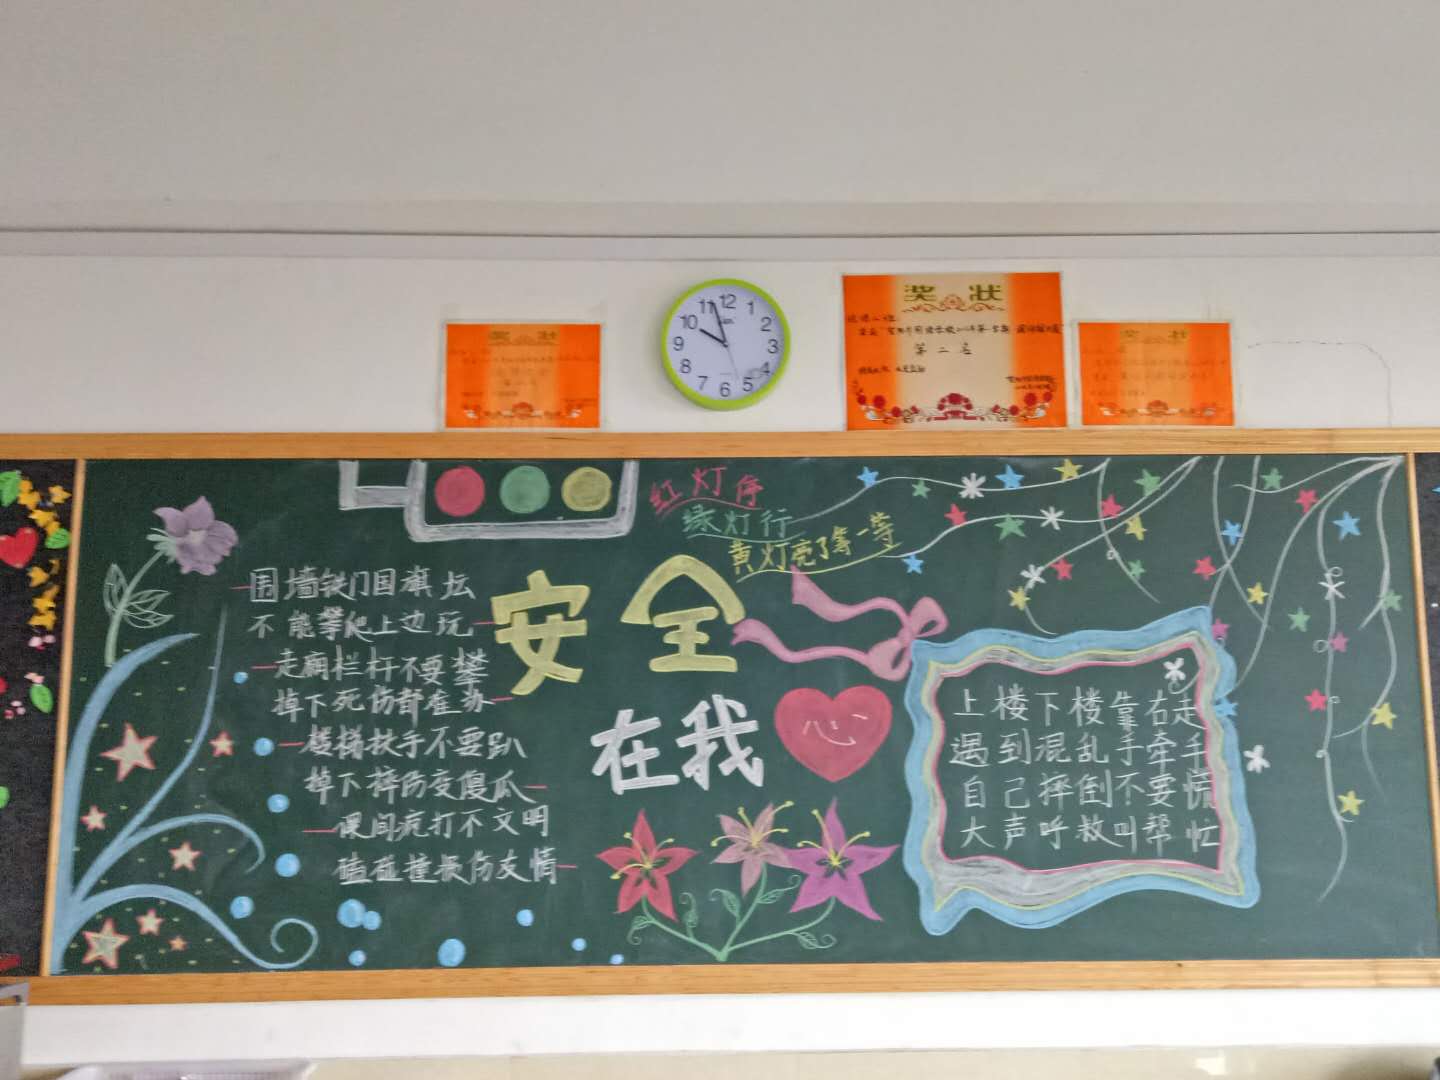 奖状
奖状
第二名
奖状
12
1
2
3
4
5
6
7
8
9
10
11
红灯停
绿灯行
黄灯亮了等一等
安全
在我心
围墙铁门国旗坛
不能攀爬上边玩
走廊栏杆不要攀
掉下死伤都难办
楼梯扶手不要趴
掉下摔伤变傻瓜
课间疯打不文明
磕碰撞损伤友情
上楼下楼靠右走
遇到混乱手牵手
自己摔倒不要慌
大声呼救叫帮忙